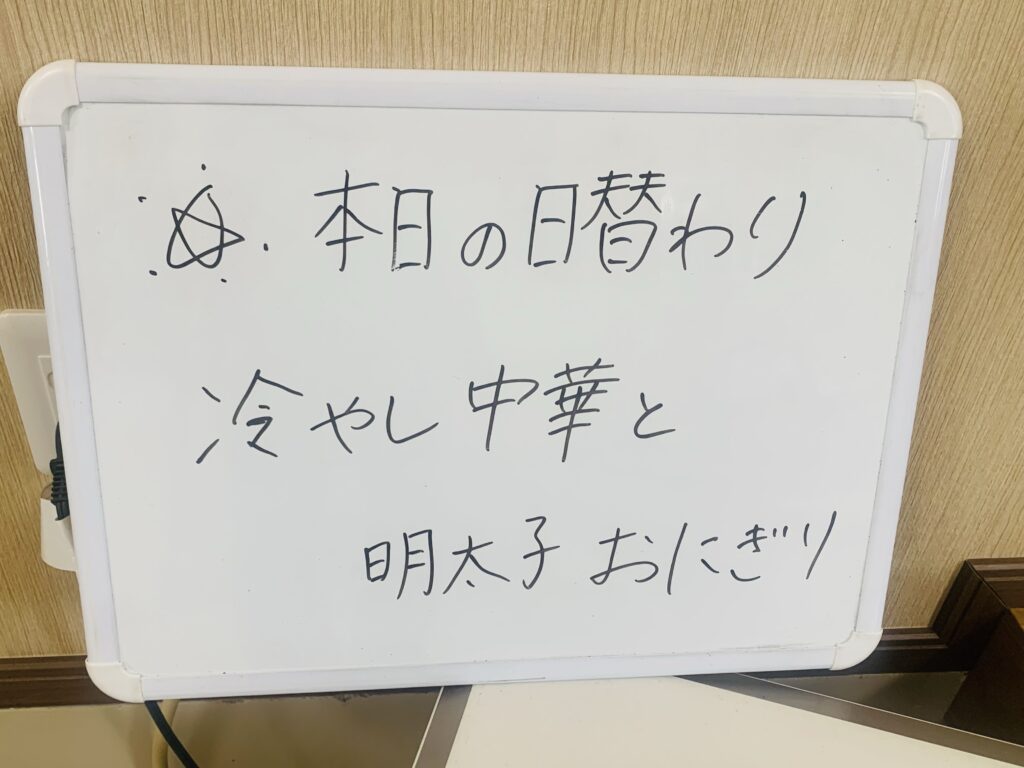 ☆本日の日替わり
冷やし中華と
明太子おにぎり